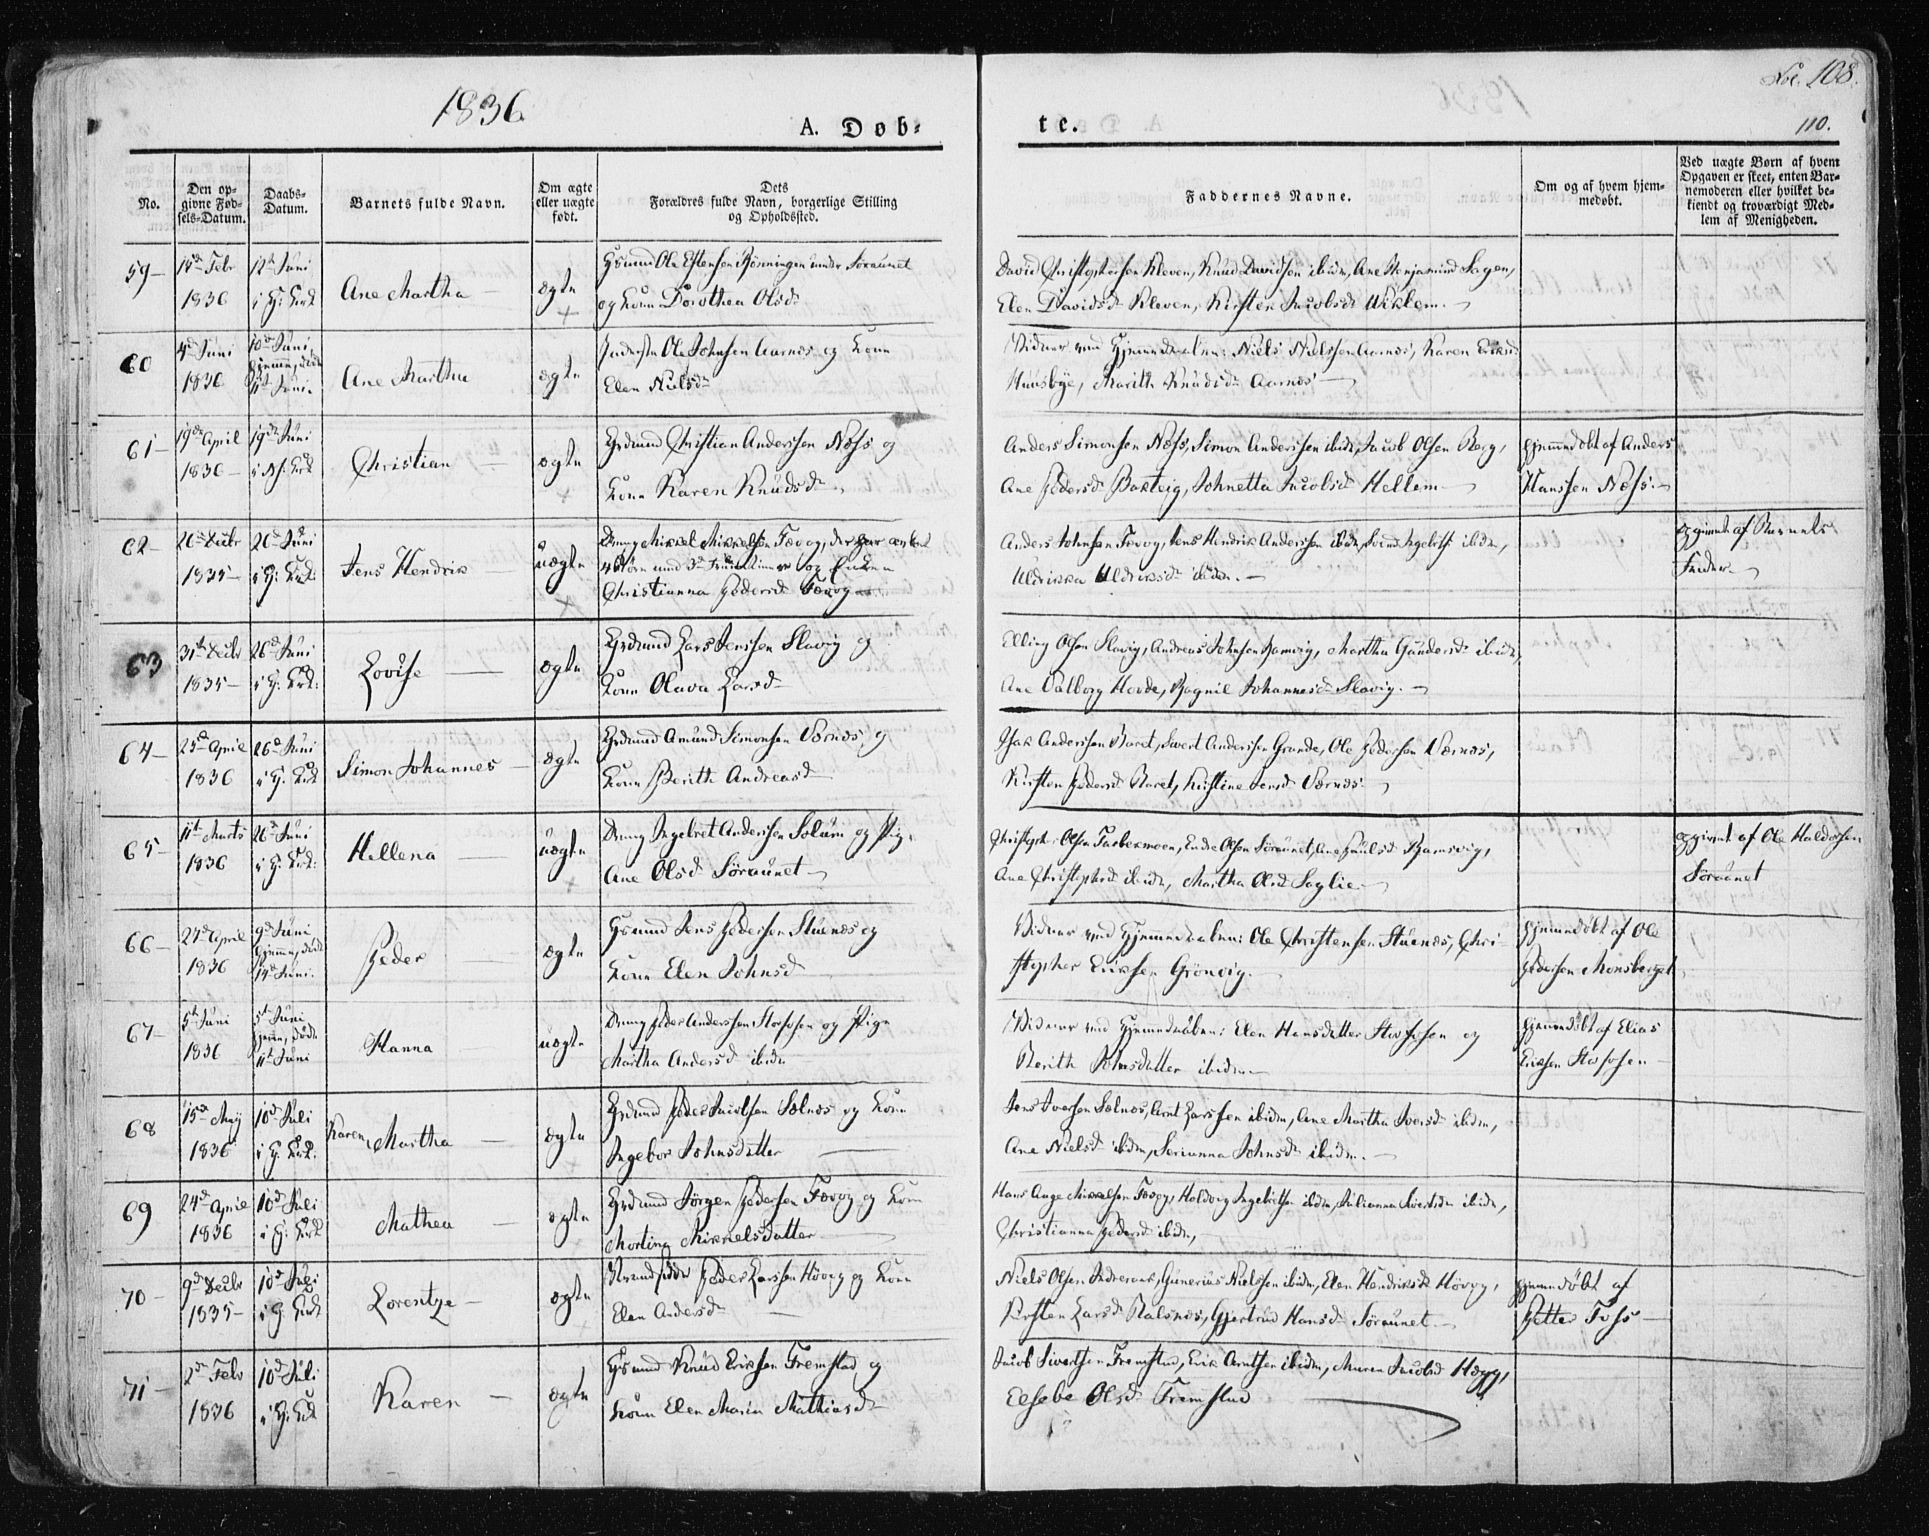 1836
A. Døb-
te.
Fol. 108.
110.
No.
Den opgivne Fødsels-Datum.
Daabs-Datum.
Barnets fulde Navn.
Om ægte eller uægte født.
Dets Forældres fulde Navn, borgerlige Stilling og Opholdssted.
Faddernes Navne.
Om og af hvem hjemmedøbt.
Ved uægte Børn af hvem Opgaven er skeet, enten Barnemoderen eller hvilket bekiendt og troværdigt Medlem af Menigheden.
59 15de Febr 12te Juni
1836 i Hj: Kirk
Ane Martha
ægte
Huusmd Ole Estensen Rønningen under Søraunet
og Kone Dorothea Olsd
David Christophersen Kleven, Knud Davidsen ibidm, Ane Benjamind Sagen,
Elen Davidsd Kleven, Kirsten Jacobsd Wiklem.
60 4de Juni 10de Juni
hjemme, død
1836 11te Juni
Ane Martha
ægte
Inderste Ole Johnsen Aarnes og Kone
Elen Nielsd
Vidner ved Hjemmedaaben: Niels Nielssen Aarnes, Karen Eriksd
Huusbye, Marith Knudsd Aarnes
61 19de April 19de Juni
1836 i Kirk
Christian
ægte
Grdmand Christian Anderssen Næss og
Kone Karen Knudsd
Anders Simonsen Næss, Simon Anderssen ibidm, Jacob Olsen Berg,
Ane Pedersd Barteig, Johnetta Jacobsd Hellem
hjemmedøbt af Anders
Hanssen Næss.
62 26de Decbr 26de Juni
1835 i Hj: Kirk:
Jens Hendrik
uægte
Dreng Mikkel Mikkelsen Fevog, der har
4 Børn med 3de Fruentimmer og Enken
Christianna Pedersd Fevog
Anders Johnsen Fevog, Jens Hendrik Anderssen ibidm, Svend Ingebrtsen ibidm,
Uldrikka Uldriksd ibidm.
opgivet af Barnets
Fader
63 31te Decbr 26de Juni
1835 i Hj: Kirk:
Lovise
ægte
Grdmand Lars Jenssen Slavig og
Kone Olava Larsd
Elling Olsen Slavig, Andreas Johnsen Ramvig, Martha Gundersd ibidm,
Ane Valborg Hovde, Ragnil Johannesd Slavig.
64 25de April 26de Juni
1836 i Hj. Kirk
Simon Johannes
ægte
Grdmand Amund Simonsen Værnes og
Kone Berith Andreasd
Isak Anderssen Baret, Sivert Anderssen Grande, Ole Pedersen Værnes,
Kirsten Pedersd Baret, Kirstine Jensd Værnes
65 11te Marts 26de Juni
1836 i Hj. Kirk:
Hellena
uægte
Dreng Ingebret Anderssen Solum og Pige
Ane Olsd Søraunet
Christopher Olsen Farbekmoen, Endre Olsen Søraunet, Ane Paulsd Ramsvig,
Ane Christophersd ibidm, Martha Olsd Saglie.
opgivet af Ole Haldorsen
Søraunet
66 24de April 9de Juni
hjemme, døbt
1836 14de Juni.
Peder
ægte
Huusmand Jens Pedersen Stuenes og
Kone Elen Johnsd
Vidner ved Hjemmedaaben: Ole Christensen Stuenes, Chri-
stopher Eriksen Grönvig.
hjemmedøbt af Ole
Pedersen Monsberget
67 5te Juni 5te Juni
hjemme, døbt
1836 11te Juni
Hanna
uægte
Dreng Peder Anderssen Storfosen og Pige
Martha Andersd ibidm
Vidner ved Hjemmedaaben: Elen Hansdatter Storfosen og
Berith Johnsdatter ibidm
hjemmedøbt af Elias
Eriksen Storfosen
68 15de May 10de Juli
1836 i Hj. Kirk:
Karen Martha
ægte
Grdmand Peder Jacobsen Sælnes og Kone
Ingebor Johnsdatter
Jens Iversen Sælnes, Arnt Larssen ibidm, Ane Martha Iversd ibidm,
Ane Nielsd ibidm, Serianna Johnsd ibidm.
69 24de April 10de Juli
1836 i Hj: Kirk
Mathea
ægte
Grdmand Jörgen Pedersen Fevog og Kone
Mortina Mikkelsdatter
Hans Aage Mikkelsen Fevog, Haldorg Ingebretsen ibidm, Julianna Sivertsd ibidm,
Christianna Pedersd ibidm,
70 9de Decbr 10de Juli
1835 i Hj. Kirk
Lorentze
ægte
Strandsidder Peder Larssen Høvig og Kone
Elen Andersd
Niels Olsen Indreraas, Gunerius Nielssen ibidm, Elen Hendriksd Høvig,
Kirsten Larsd Ralsnes, Gjertrud Hansd Søraunet.
hjemmedøbt af
Petter Foss
71 2de Febr 10de Juli
1836 i Hj: Kirk
Karen
ægte
Huusmand Knud Eriksen Fremstad og
Kone Elen Maria Mathiasd
Jacob Sivertsen Fremstad, Erik Arntsen ibidm, Maren Jacobsd Hegg,
Elsebe Olsd Fremstad